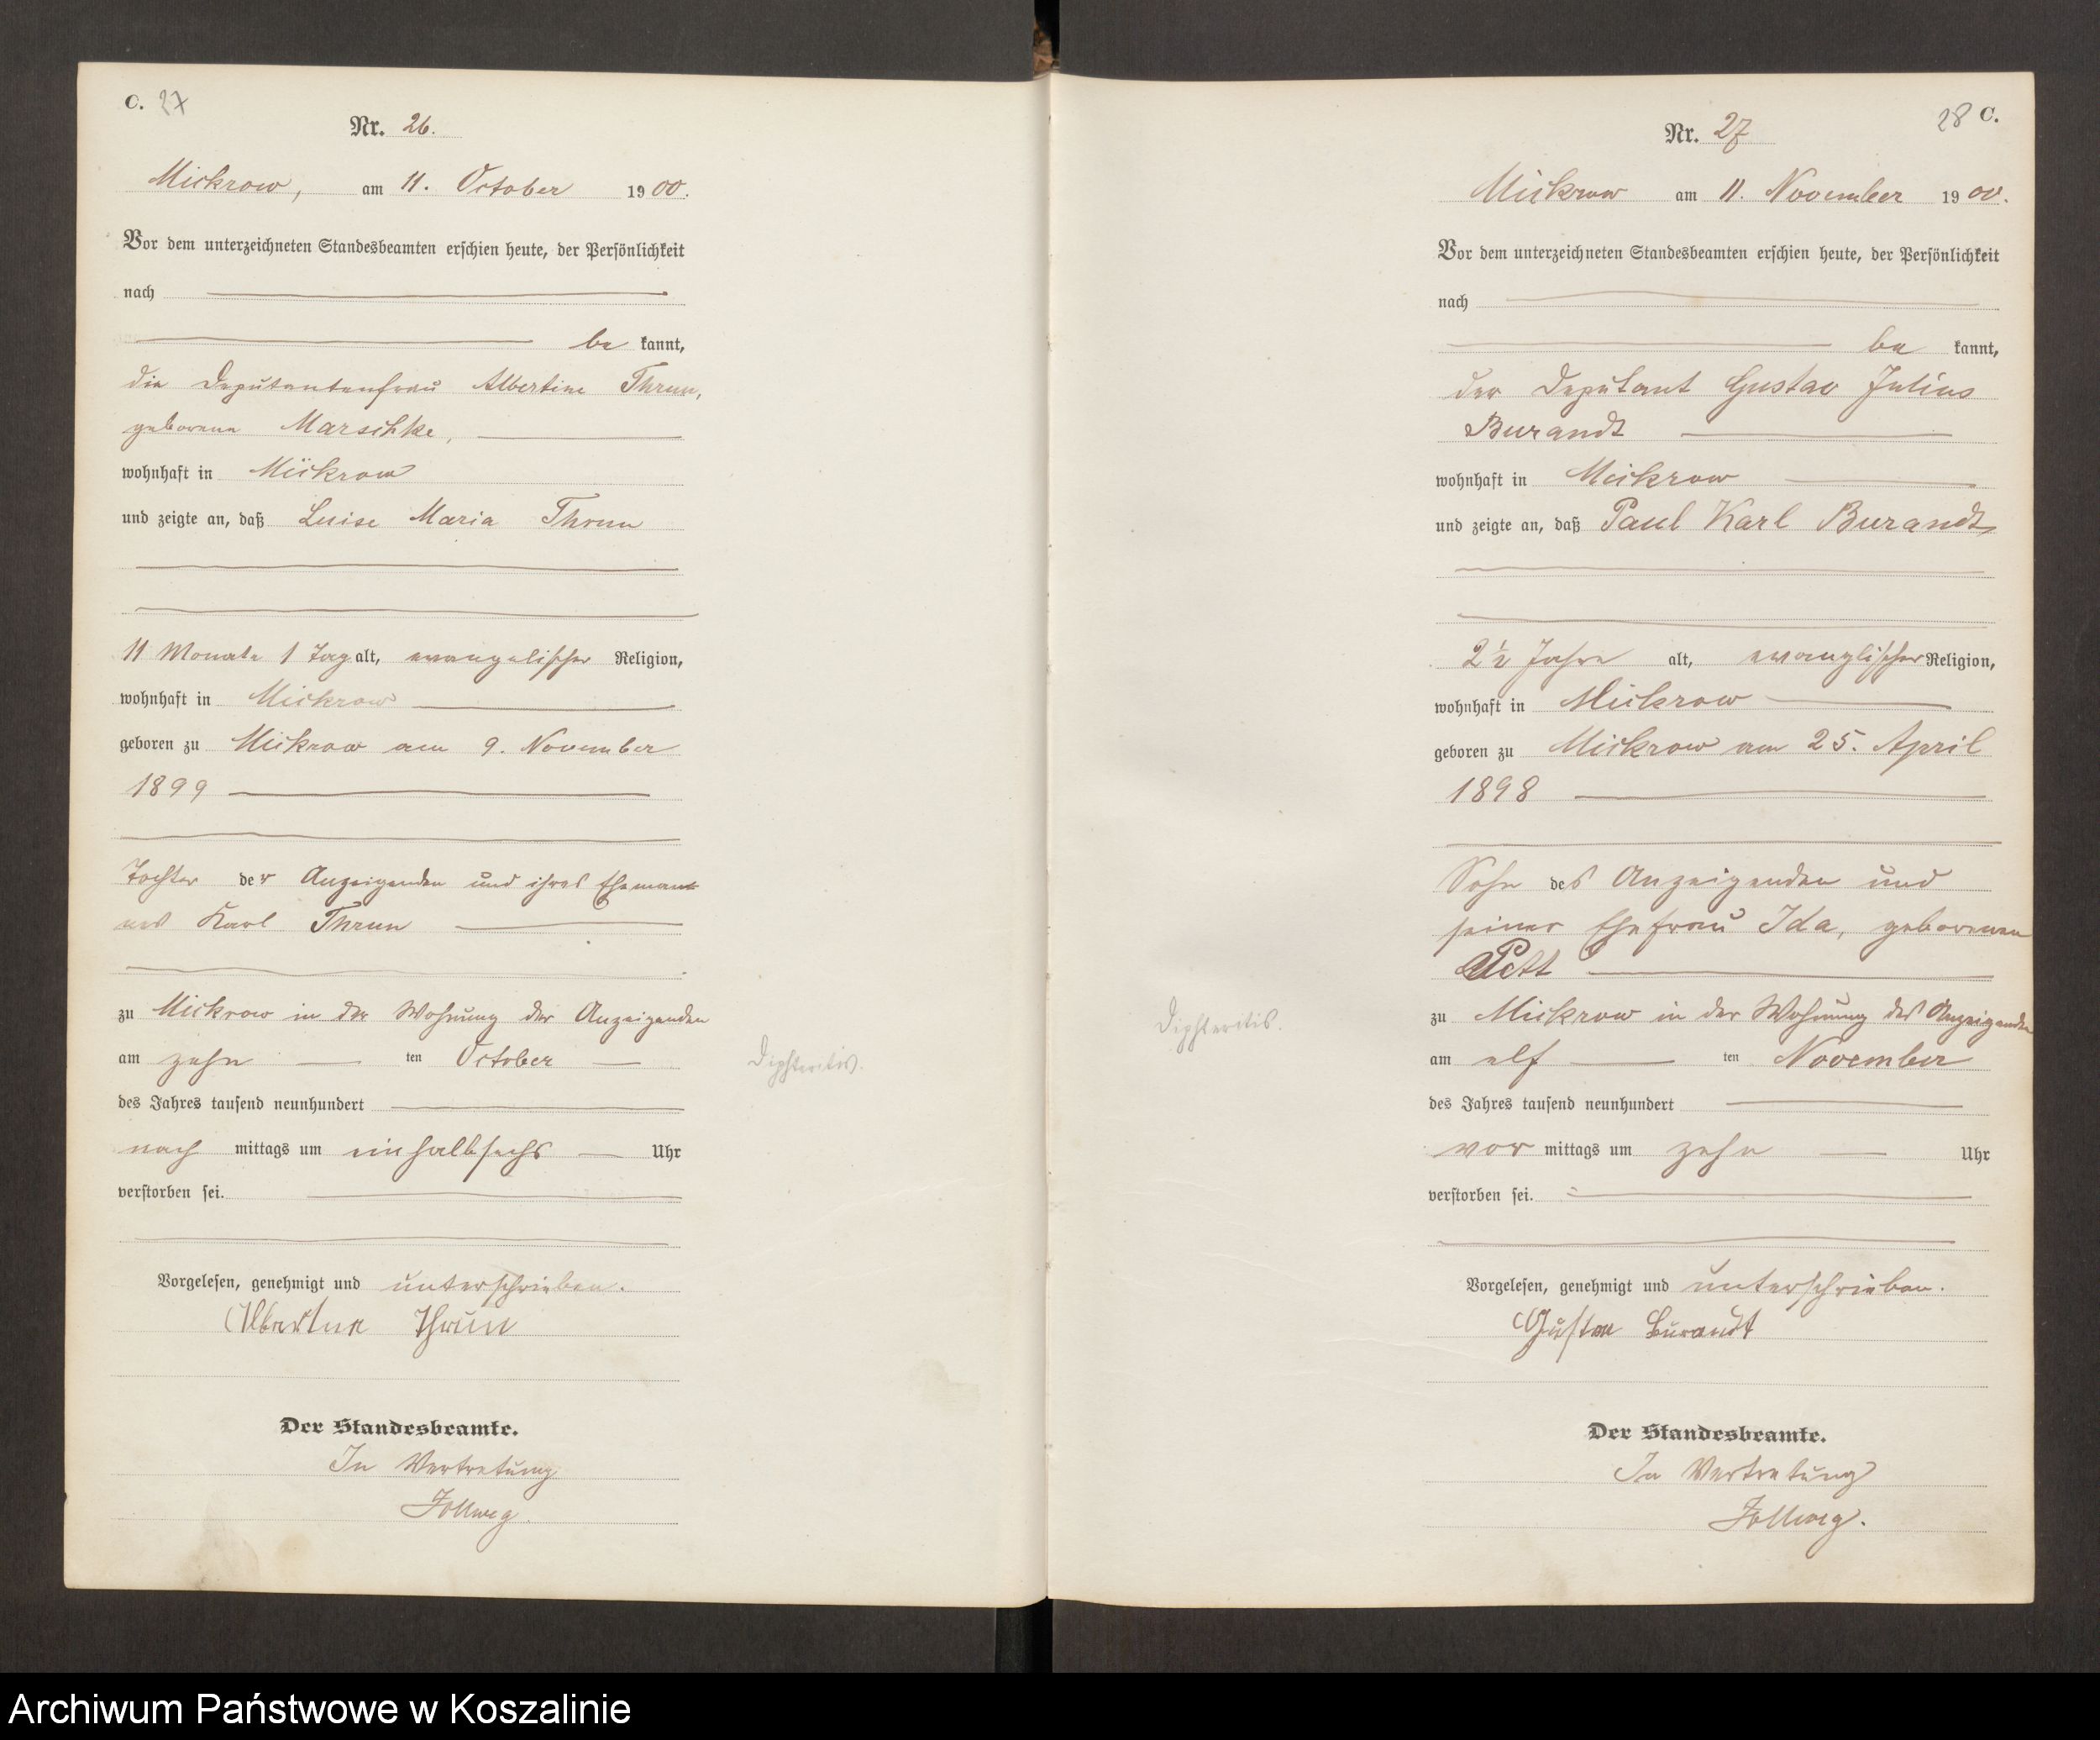 C. 27
Nr. 26.
Mickrow, am 11. October 1900.
Vor dem unterzeichneten Standesbeamten erschien heute, der Persönlichkeit
nach
be kannt,
die Deputantenfrau Albertine Thrun,
geborene Marschke,
wohnhaft in Mickrow
und zeigte an, daß Luise Maria Thrun
11 Monate 1 Tag alt, evangelischer Religion,
wohnhaft in Mickrow
geboren zu Mickrow am 9. November
1899
Tochter der Anzeigenden und ihres Eheman
nes Karl Thrun
zu Mickrow in der Wohnung der Anzeigenden
am zehn ten October
Diphteritis.
des Jahres tausend neunhundert
nach mittags um einhalbsechs Uhr
verstorben sei.
Vorgelesen, genehmigt und unterschrieben.
Albertine Thrun
Der Standesbeamte.
In Vertretung
28 C.
Nr. 27
Mickrow am 11. November 1900.
Vor dem unterzeichneten Standesbeamten erschien heute, der Persönlichkeit
nach
be kannt,
der Deputant Gustav Julius
Burandt
wohnhaft in Mickrow
und zeigte an, daß Paul Karl Burandt,
2½ Jahre alt, evanglischer Religion,
wohnhaft in Mickrow
geboren zu Mickrow am 25. April
1898
Sohn des Anzeigenden und
seiner Ehefrau Ida, geborenen
zu Mickrow in der Wohnung des Anzeigenden
Diphteritis.
am elf ten November
des Jahres tausend neunhundert
vor mittags um zehn Uhr
verstorben sei.
Vorgelesen, genehmigt und unterschrieben.
Gustav Burandt
Der Standesbeamte.
In Vertretung
Archiwum Państwowe w Koszalinie